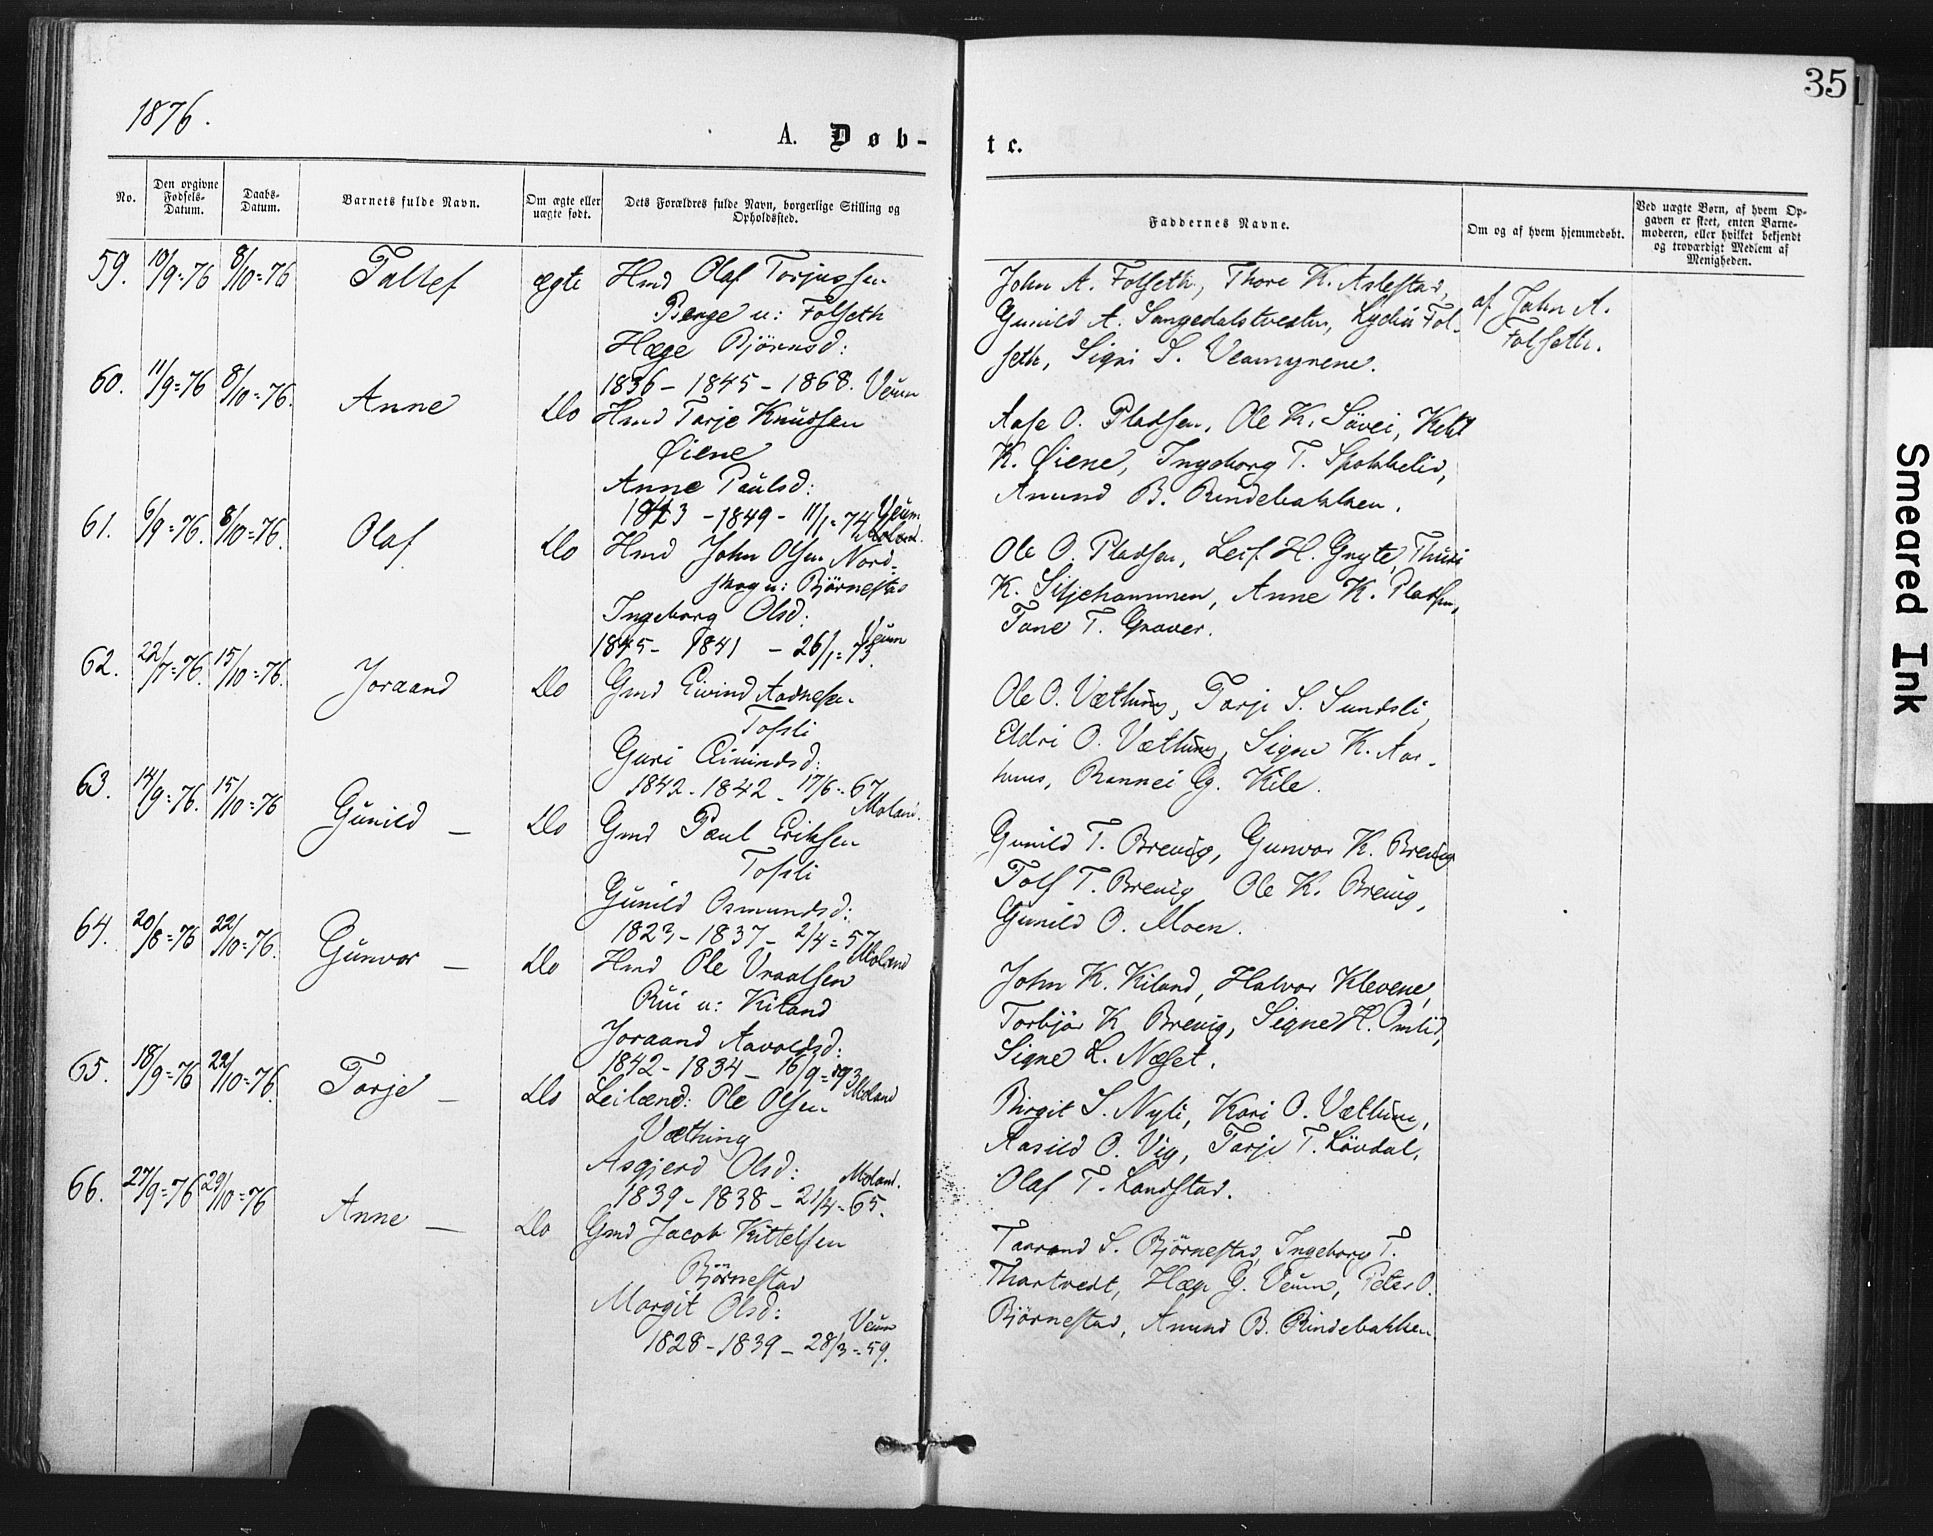 1876.
35
A. Døb-
te.
No.
Den opgivne Fødsels-Datum.
Daabs-Datum.
Barnets fulde Navn.
Om ægte eller uægte født.
Dets Forældres fulde Navn, borgerlige Stilling og Opholdssted.
Faddernes Navne.
Om og af hvem hjemmedøbt.
Ved uægte Børn, af hvem Opgaven er skeet, enten Barnemoderen, eller hvilket bekjendt og troværdigt Medlem af Menigheden.
59. 10/9=76 8/10=76 Tallef ægte Hmd Olaf Torjussen
Berge u: Folseth
Hæge Bjørnsd:
1836 - 1845 - 1868. Veum
John A. Folseth, Thore K. Aslestad,
Gunild A. Sangedalstvedten, Lydia Fol-
seth, Signi S. Veamyrene.
af John A.
Folseth.
60. 11/9=76 8/10=76. Anne Do Hmd Tarje Knudsen
Øiene
Anne Paulsd:
1843 - 1849 - 11/1=74 Veum
Aase O. Pladsen, Ole K. Søvei, Ketil
K. Øiene, Ingeborg T. Spokkelid,
Amund B. Rindebakken.
61. 6/9=76. 8/10=76. Olaf Do Hmd John Olsen Nord-
skog u: Bjørnestad
Ingeborg Olsd:
1845 - 1841 - 26/1=73. Veum
Ole O. Pladsen, Leif H. Gryte, Thuri
K. Siljehammen, Anne K. Pladsen,
Tone T. Graver.
62. 22/7=76. 15/10=76. Joraand Do Gmd Eivind Aadnesen
Tofsli
Guri Eivindsd:
1842 - 1842 - 17/6=67 Moland.
Ole O. Væthing, Tarje S. Sundsli,
Eldri O. Væthing, Signe K. Aas-
hus, Rannei G. Kile.
63. 14/9=76. 15/10=76 Gunild - Do Gmd Paul Eriksen
Tofsli
Gunild Osmundsd:
1823 - 1837 - 2/4=57 Moland
Gunild T. Brevig, Gunvor K. Brevig
Tolf T. Brevig, Ole K. Brevig,
Gunild O. Moen.
64. 20/8=76 22/10=76. Gunvor - Do Hmd Ole Vraalsen
Rui u: Kiland
Joraand Aavoldsd:
1842 - 1834 - 16/9= Moland
John K. Kiland, Halvor Klevene,
Torbjør K. Brevig, Signe H. Omlid,
Signe L. Næset.
65. 18/9=76 22/10=76. Tarje - Do Leilænd: Ole Olsen
Væthing
Asgjerd Olsd:
1839 - 1838 - 21/4=65. Moland.
Birgit S. Nyli, Kari O. Væthing,
Aasild O. Vig, Tarje T. Løvdal,
Olaf T. Landstad.
66. 27/9=76 29/10=76 Anne - Do Gmd Jacob Kittelsen
Bjørnestad
Margit Olsd:
1828 - 1839 - 28/3=59. Veum
Taarand S. Bjørnestad, Ingeborg T.
Thortvedt, Hæge G. Veum, Peter O.
Bjørnestad, Amund B. Rindebakken.
Smeared Ink